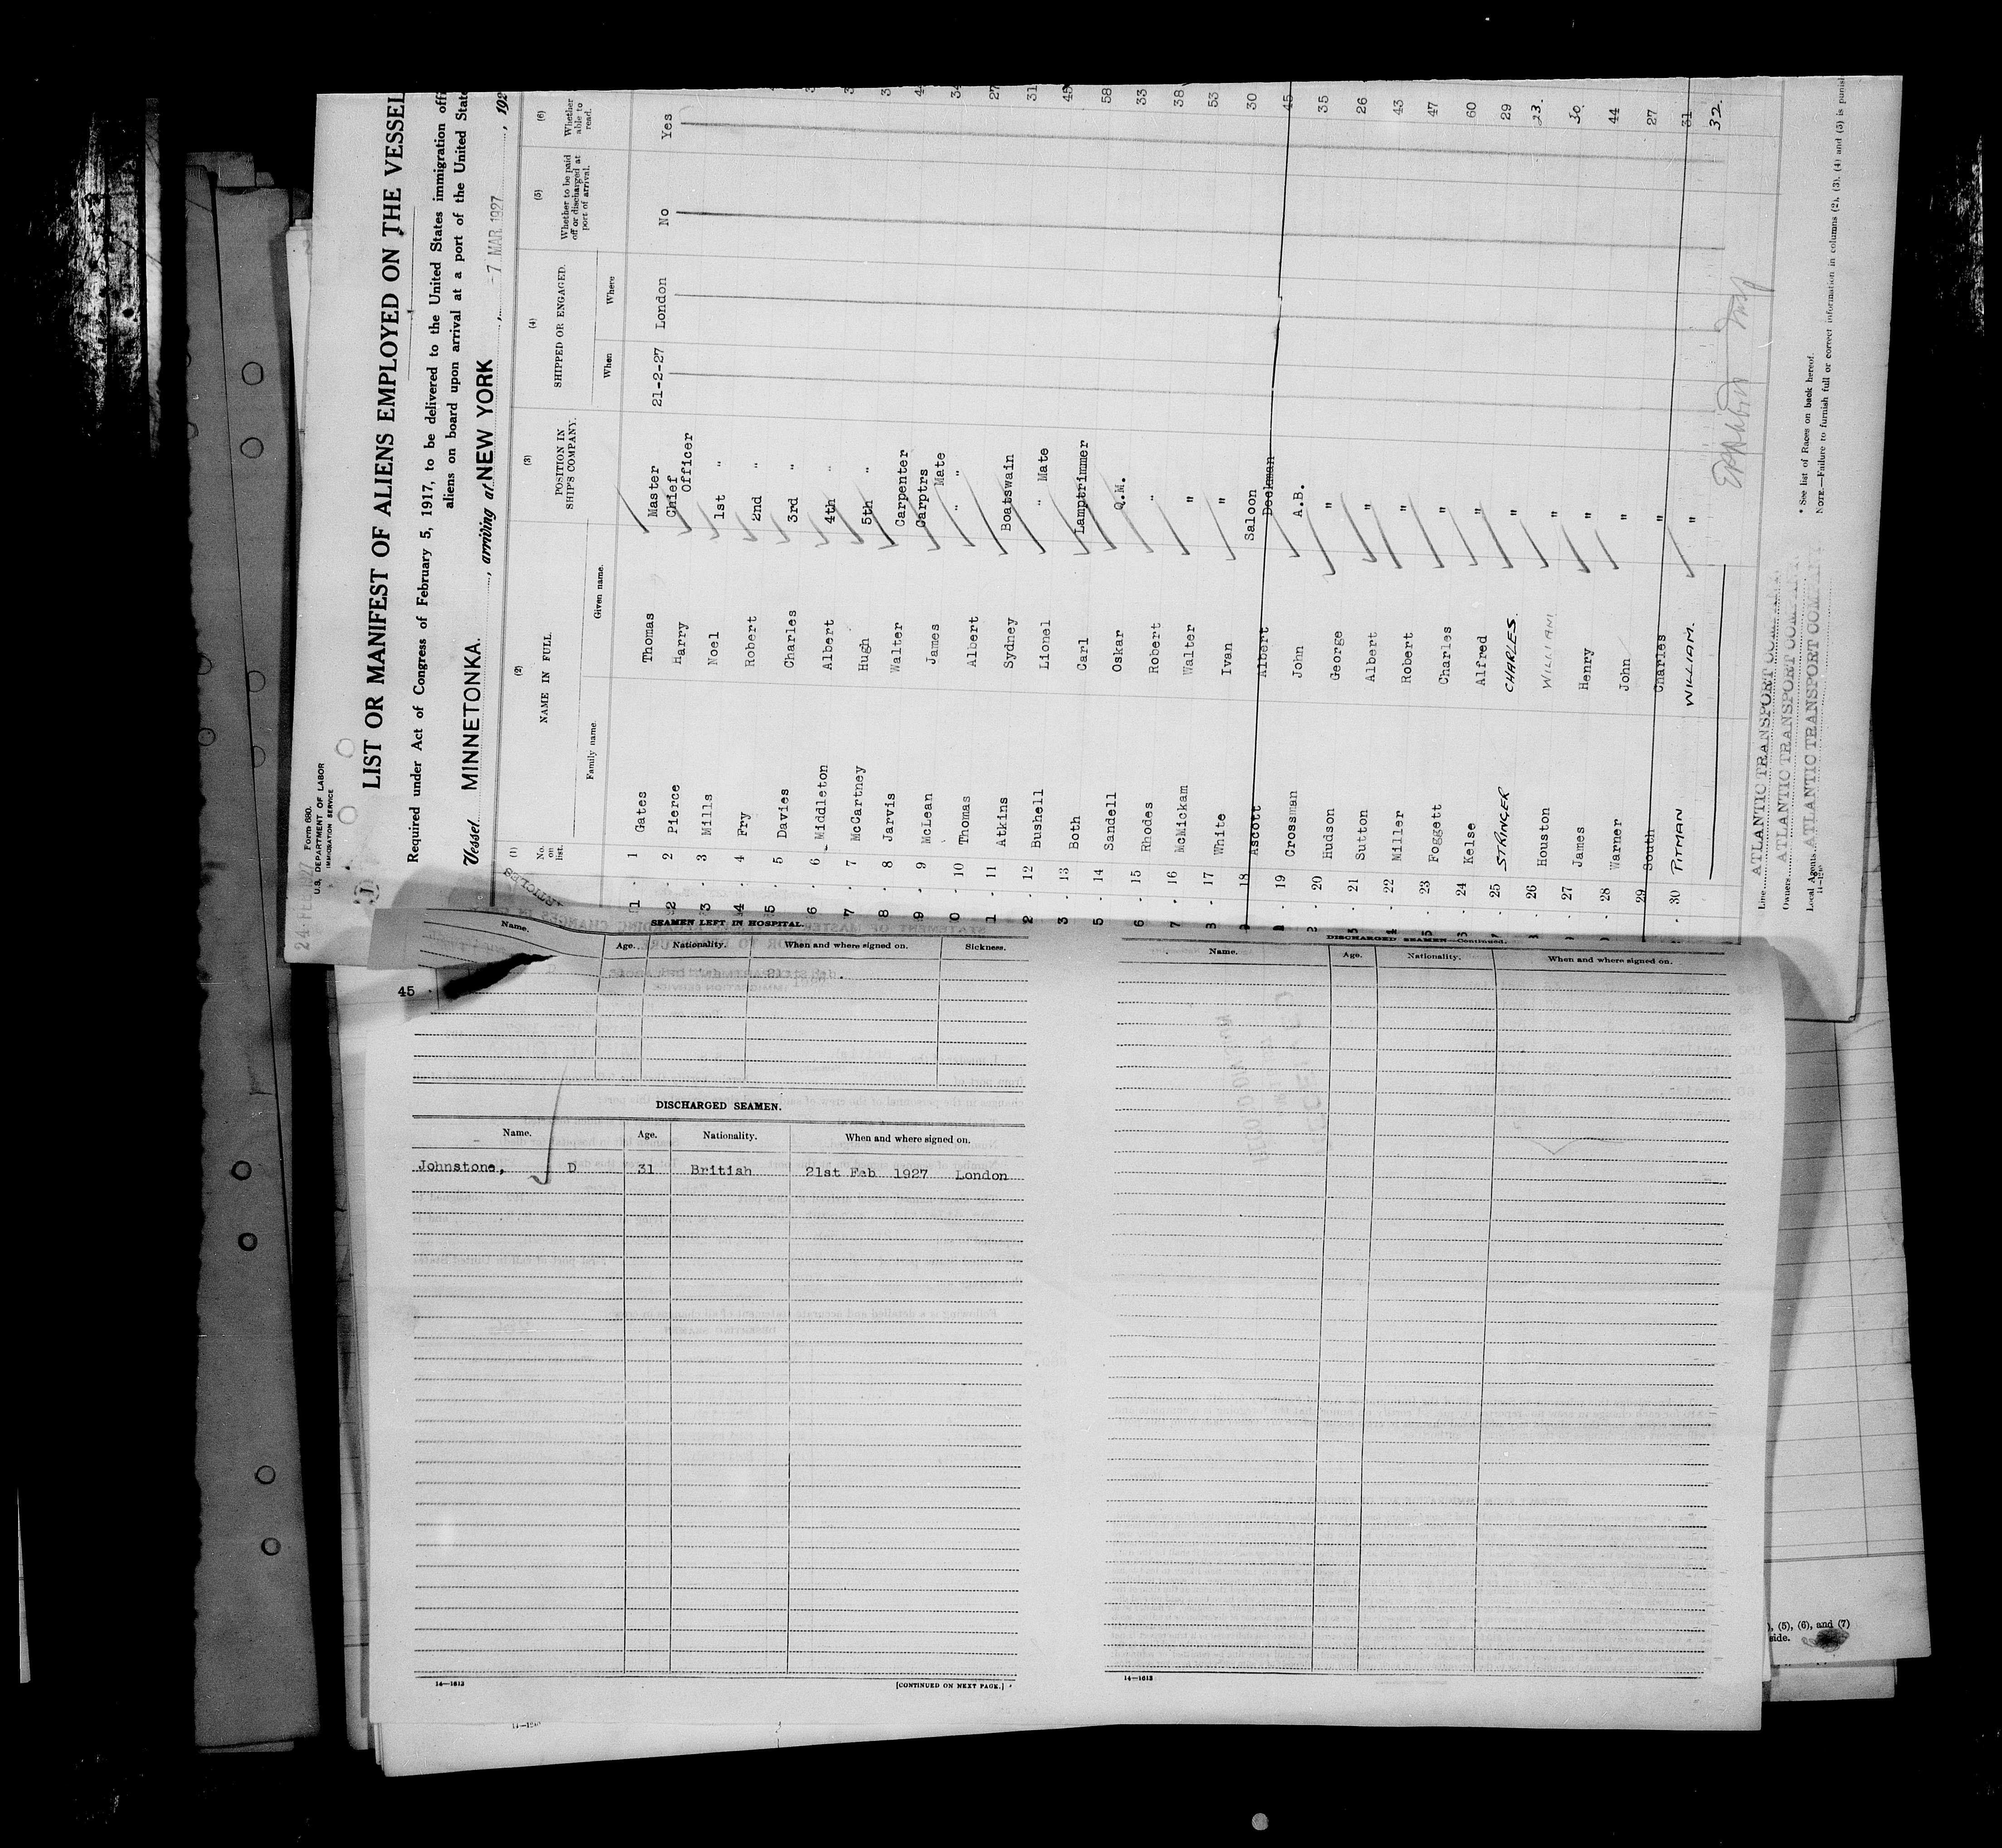 Form 680.
U.S. DEPARTMENT OF LABOR
IMMIGRATION SERVICE
LIST OR MANIFEST OF ALIENS EMPLOYED ON THE VESSEL
Required under Act of Congress of February 5, 1917, to be delivered to the United States immigration offi
aliens on board upon arrival at a port of the United State
Vessel MINNETONKA. , arriving at NEW YORK , -7 MAR 1927 , 192
(1) (2) (3) (4) (5) (6)
No. on list. NAME IN FULL. POSITION IN SHIP'S COMPANY. SHIPPED OR ENGAGED. Whether to be paid off or discharged at port of arrival. Whether able to read.
Family name. Given name. When Where
1 Gates Thomas Master 21-2-27 London No Yes
2 Pierce Harry Chief Officer
3 Mills Noel 1st "
4 Fry Robert 2nd "
5 Davies Charles 3rd "
6 Middleton Albert 4th "
7 McCartney Hugh 5th "
8 Jarvis Walter Carpenter
9 McLean James Carptrs Mate 34
10 Thomas Albert " " 27
11 Atkins Sydney Boatswain 31
12 Bushell Lionel " Mate 45
13 Both Carl Lamptrimmer 58
14 Sandell Oskar Q.M. 33
15 Rhodes Robert " 38
16 McMickam Walter " 53
17 White Ivan " 30
18 Ascott Albert Saloon Deckman 45
19 Crossman John A.B. 35
20 Hudson George " 26
21 Sutton Albert " 43
22 Miller Robert " 47
23 Foggett Charles " 60
24 Kelse Alfred " 29
25 STRINGER CHARLES. " 23.
26 Houston WILLIAM " 30.
27 James Henry " 44
28 Warner John " 27
29 South Charles " 31
30 PITMAN WILLIAM. " 32.
Line ATLANTIC TRANSPORT COMPANY
Owners ATLANTIC TRANSPORT COMPANY
Local Agents ATLANTIC TRANSPORT COMPANY
* See list of Races on back hereof.
NOTE.—Failure to furnish full or correct information in columns (2), (3), (4) and (5) is punish
SEAMEN LEFT IN HOSPITAL.
Name. Age. Nationality. When and where signed on. Sickness.
45
DISCHARGED SEAMEN.
Name. Age. Nationality. When and where signed on.
Johnstone, D 31 British 21st Feb 1927 London
14—1613 [CONTINUED ON NEXT PAGE.]
DISCHARGED SEAMEN—Continued.
Name. Age. Nationality. When and where signed on.
14—1613
, (5), (6), and (7)
side.